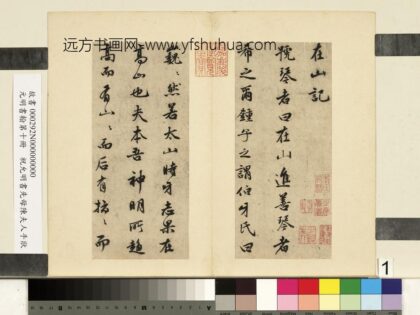 远方书画网-www.yfshuhua.com
在山記
號琴者曰在山進善琴者
希之爾鍾子之謂伯牙氏曰
巍〻然若太山時牙志果在
高山也夫本吾神明所趨
高而有山〻而后有指〻而
故書 000292N00000000
元明書翰第十冊 祝允明書先母陳夫人手狀
1